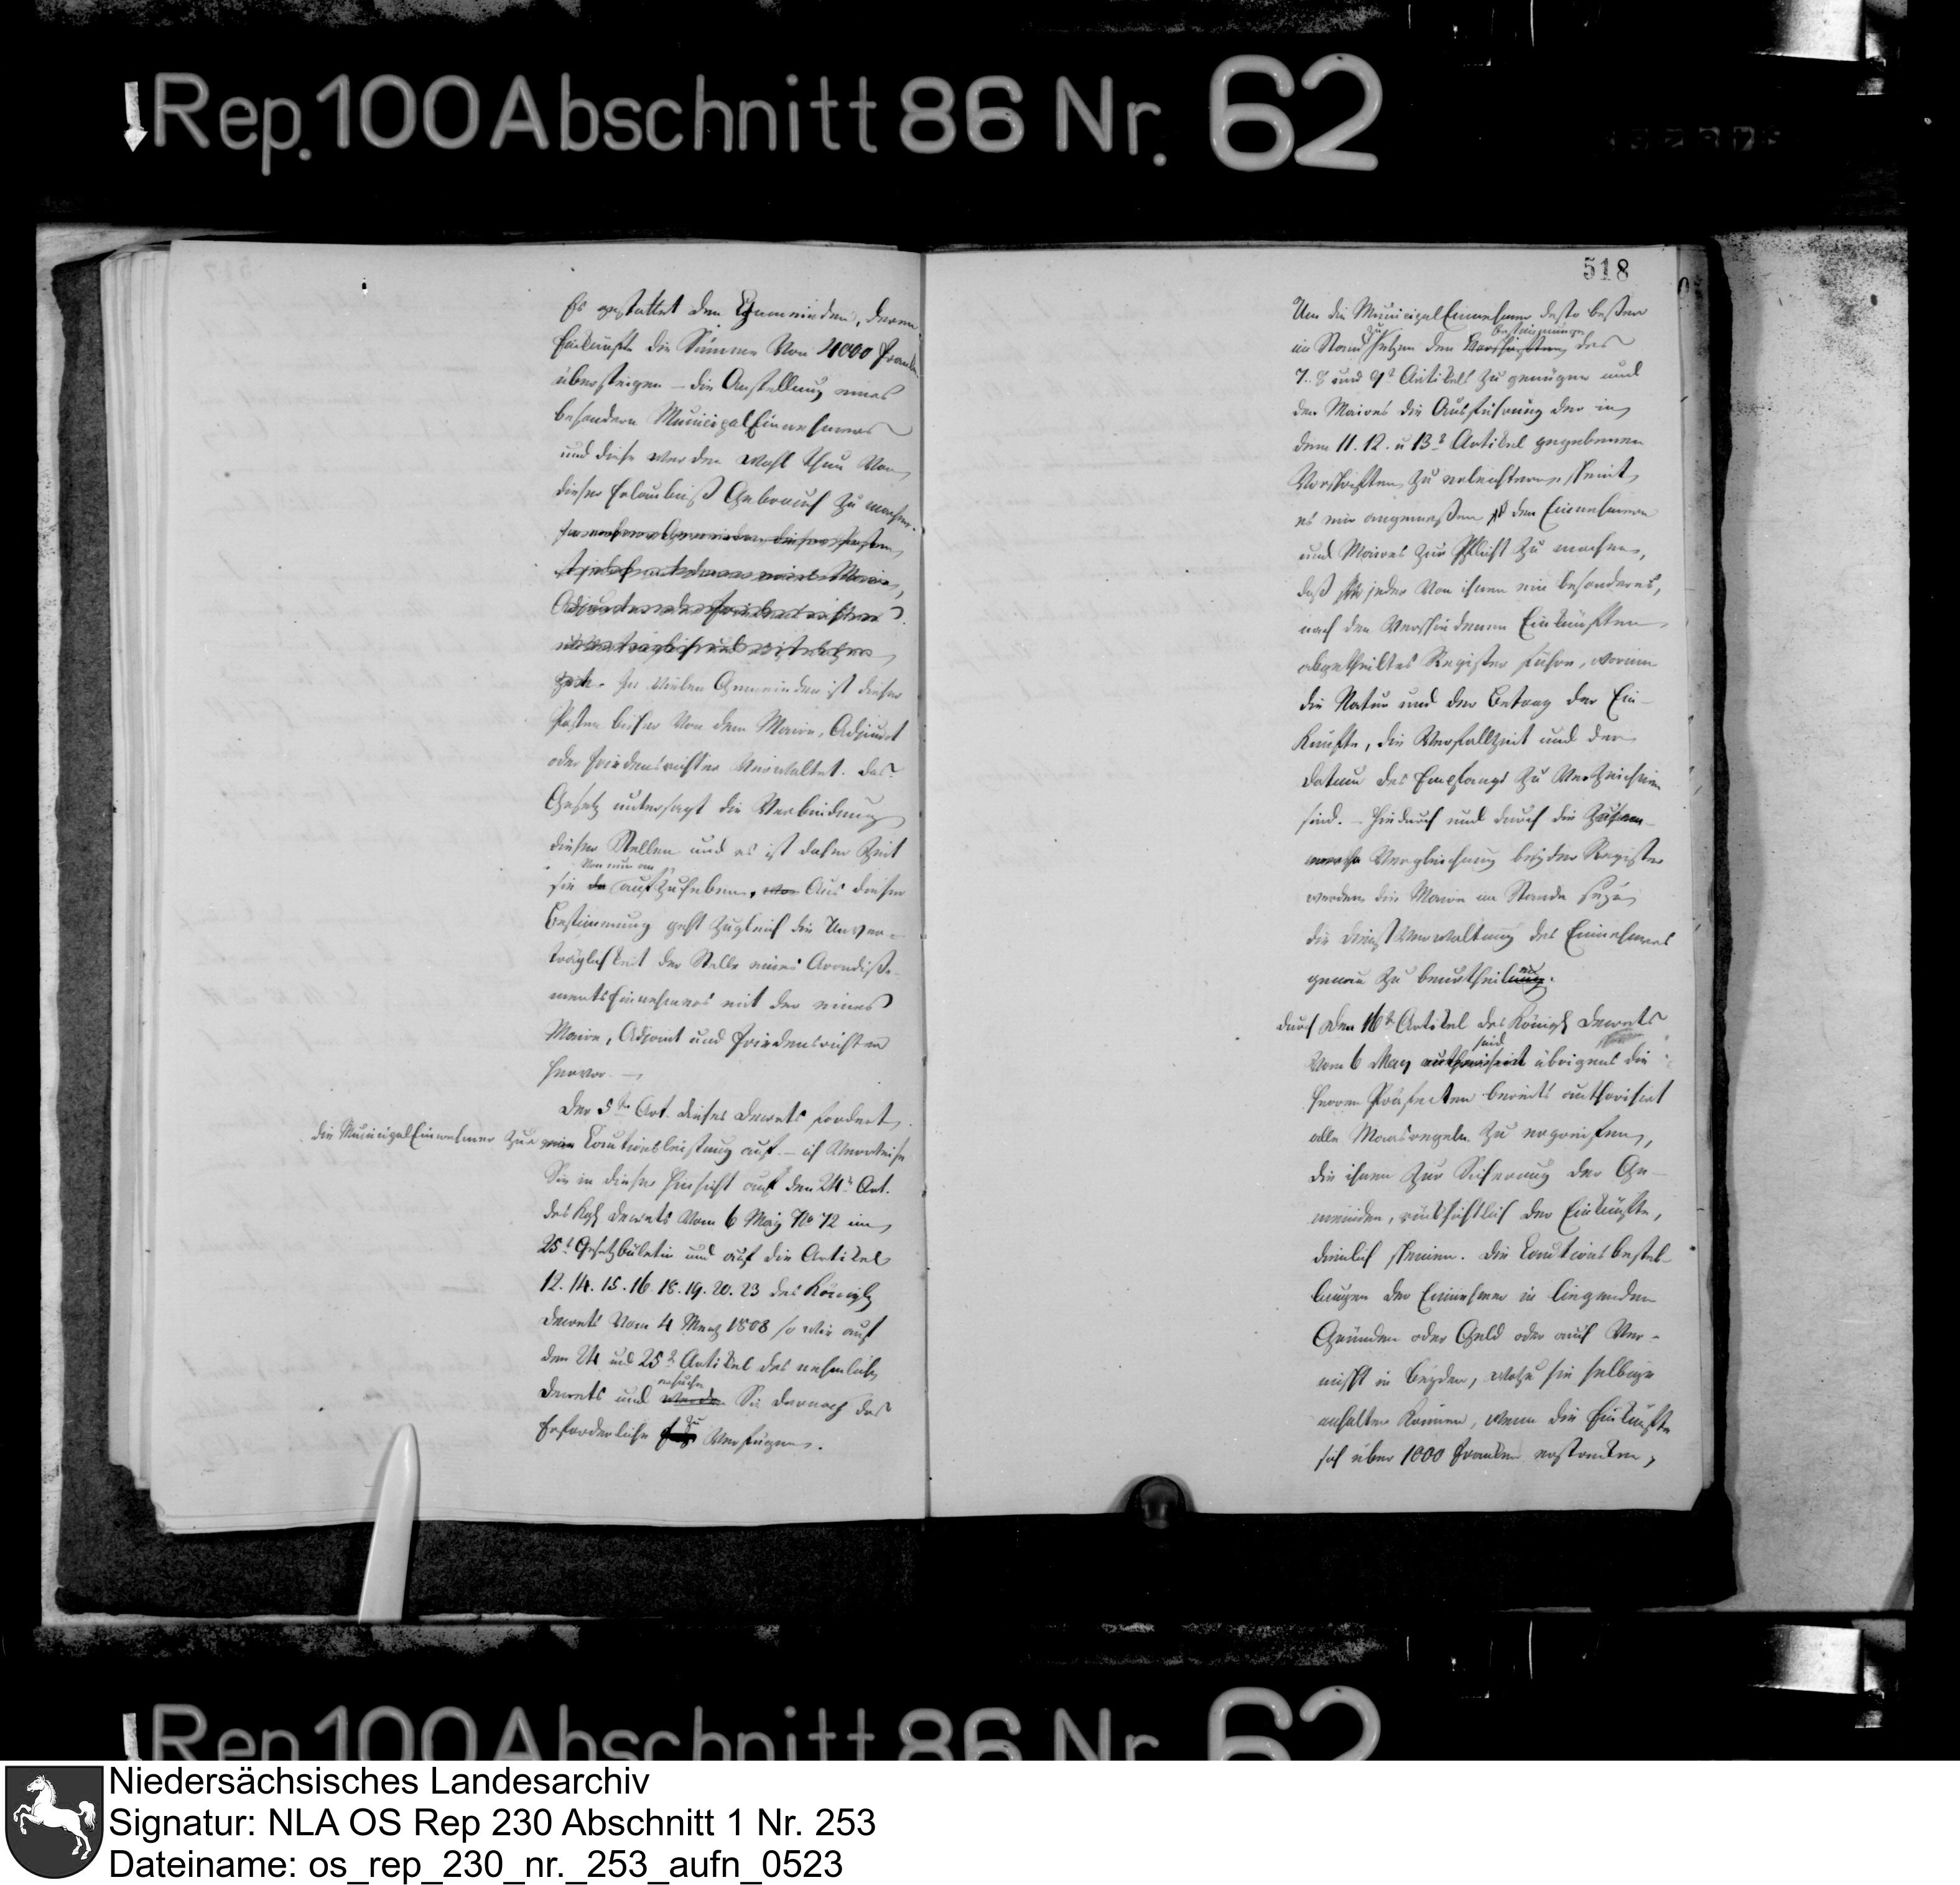 Rep. 100 Abschnitt 86 Nr. 62
Es gestattet den Gemeinden, deren
Einkünfte die Summe von 4000 Franken
übersteigen – die Anstellung eines
besondern MunicipalEinnehmers
und diese werden wohl thun von
dieser Erlaubniß Gebrauch zu machen.
In vielen Gemeinden ist dieser
Posten bisher von dem Maire, Adjunct
oder Friedensrichter verwaltet. Das
Gesetz untersagt die Verbindung
dieser Stellen und es ist daher Zeit
von nun an
sie aufzuheben. Aus dieser
Bestimmung geht zugleich die Unver-
träglichkeit der Stelle eines Arondisse-
mentsEinnehmers mit der eines
Maire, Adjoint und Friedensrichter
hervor. –
Der 5te Art. dieses Decrets fordert
die MunicipalEinnehmer zur Cautionsleistung auf. – ich verweise
Sie in dieser Hinsicht auf den 24t Art.
des Kgl Decrets vom 6 May No 72 im
25t Gesetzbulletin und auf die Artikel
12. 14. 15. 16. 18. 19. 20. 23 des Königl
Decrets vom 4 Merz 1808 so wie auf
den 24 und 25t Artikel des nehmlichen
ersuche
Decrets und werde Sie darnach das
zu
Erforderliche verfügen.
518
Um die MunicipalEinnehmer desto besser
zu Bestimmungen
im Stand setzen den Vorschriften des
7. 8 und 9t Artikels zu genügen und
den Maires die Ausführung der in
dem 11. 12. u 13t Artikel gegebenen
Vorschriften zu erleichtern scheint
es mir angemessen den Einnehmern
und Maires zur Pflicht zu machen,
daß jeder von ihnen ein besonderes,
nach den verschiedenen Einkünften
abgetheiltes Register führe, worinn
die Natur und der Betrag der Ein-
künfte, die Verfallzeit und der
Datum des Empfangs zu verzeichnen
sind. – Hiedurch und durch die
Vergleichung beyder Register
werden die Maire im Stande seyn
die DienstVerwaltung des Einnehmers
genau zu beurtheilen.
Durch den 16t Artikel des Königl Decrets
sind
vom 6 May authorisirt übrigens die
Herren Präfecten bereits authorisirt
alle Maasregeln zu ergreifen,
die ihnen zur Sicherung der Ge-
meinden, rücksichtlich der Einkünfte,
dienlich scheinen. Die Cautionsbestel-
lungen der Einnehmer in liegenden
Gründen oder Geld oder auch ver-
mischt in beyden, wozu sie selbige
anhalten können, wenn die Einkünfte
sich über 1000 Franken erstrecken,
Rep. 100 Abschnitt 86 Nr. 62
Niedersächsisches Landesarchiv
Signatur: NLA OS Rep 230 Abschnitt 1 Nr. 253
Dateiname: os_rep_230_nr._253_aufn_0523